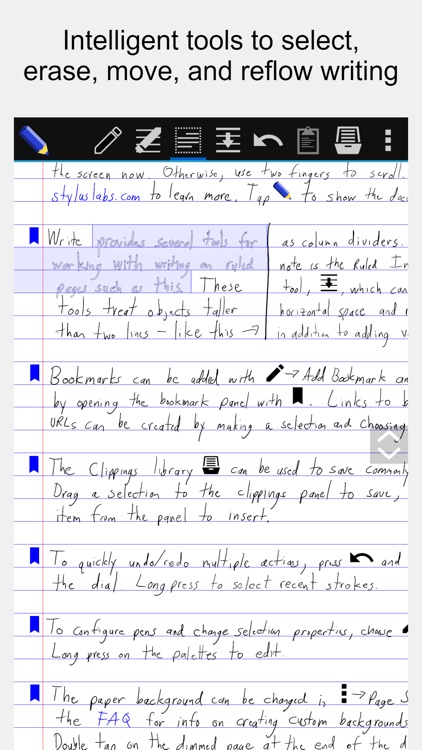 Intelligent tools to select,
erase, move, and reflow writing
the screen now. Otherwise, use two fingers to scroll.
styluslabs.com to learn more. Tap to show the
Write provides several tools for
working with writing on ruled
pages such as this. These
tools treat objects taller
than two lines – like this →
as column dividers.
note is the Ruled In
tool, , which can
horizontal space and
in addition to adding v
Bookmarks can be added with → Add Bookmark an
by opening the bookmark panel with . Links to b
URLs can be created by making a selection and choosing
The Clippings library can be used to save commonly
Drag a selection to the clippings panel to save,
item from the panel to insert.
To quickly undo/redo multiple actions, press and
the dial. Long press to select recent strokes.
To configure pens and change selection properties, choose
Long press on the palettes to edit.
The paper background can be changed in → Page S
the FAQ for info on creating custom backgrounds
Double tap on the dimmed page at the end of the d